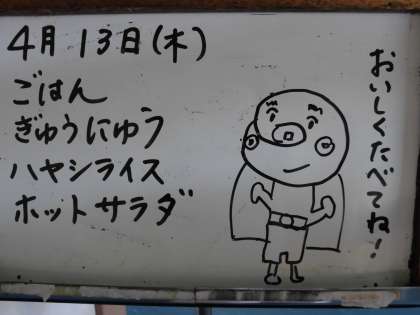 4月13日(木)
ごはん
ぎゅうにゅう
ハヤシライス
ホットサラダ
おいしくたべてね!